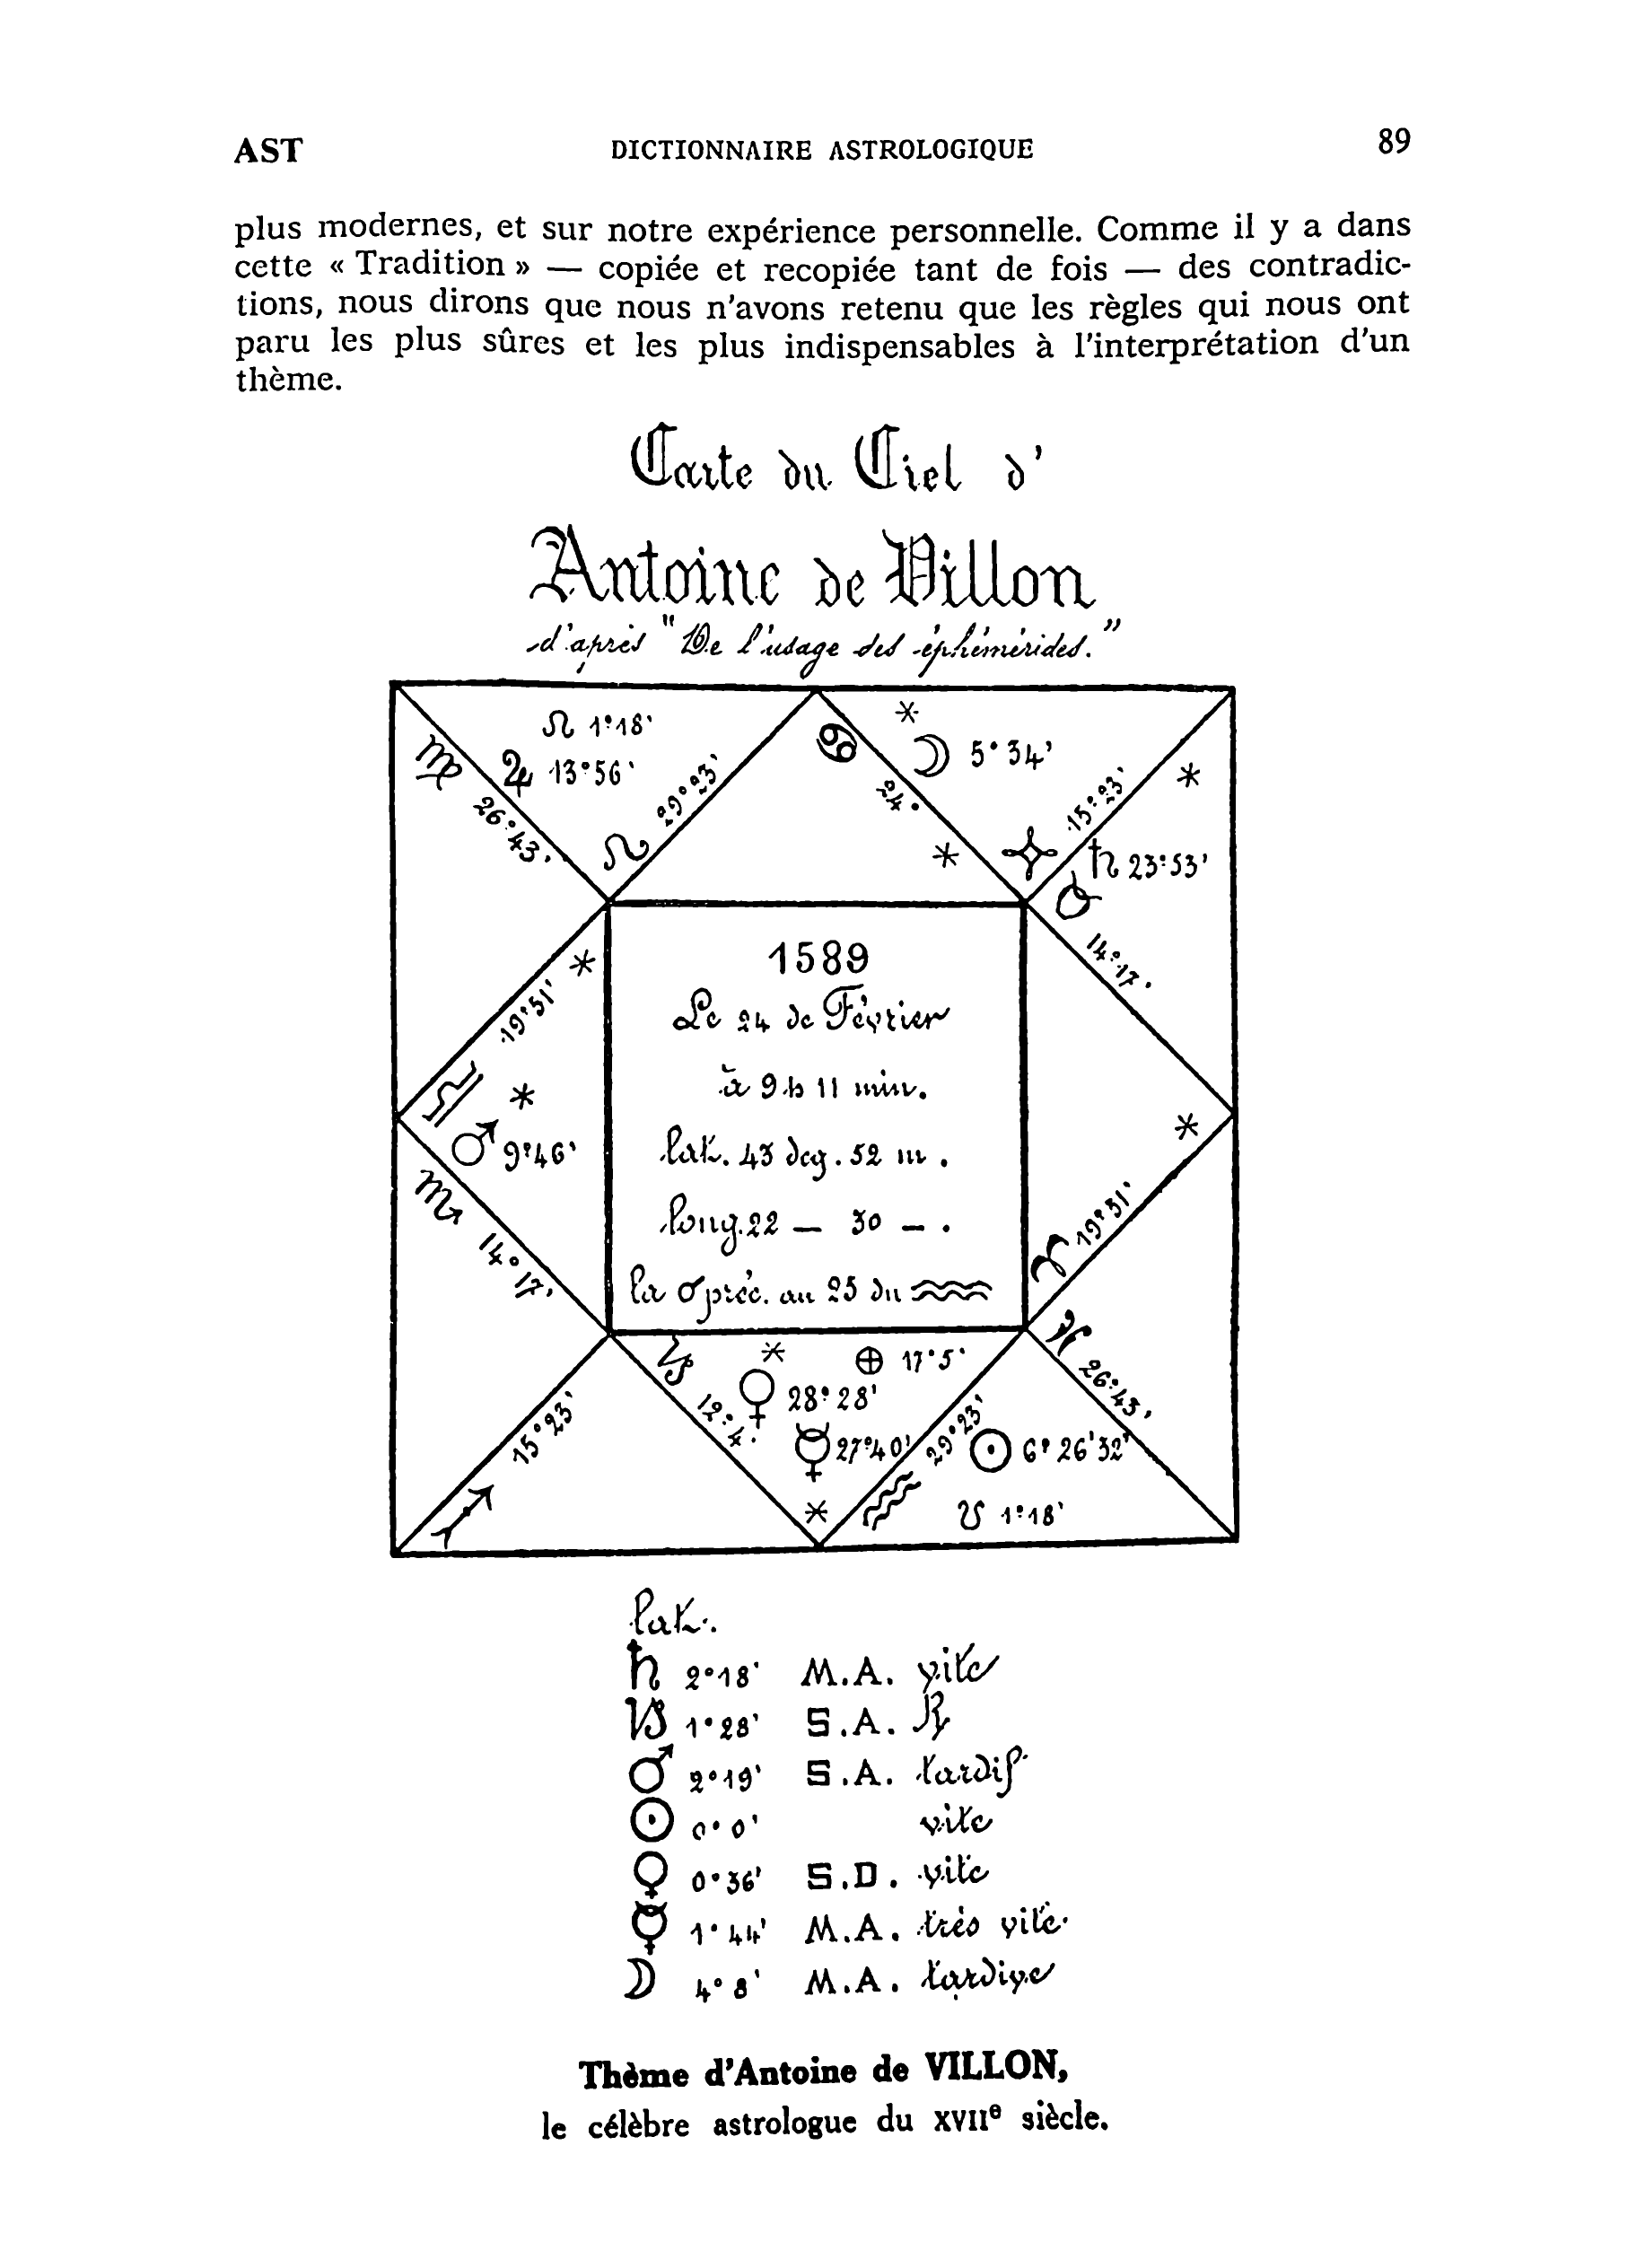 AST DICTIONNAIRE ASTROLOGIQUE 89
plus modernes, et sur notre expérience personnelle. Comme il y a dans
cette « Tradition » — copiée et recopiée tant de fois — des contradic-
tions, nous dirons que nous n'avons retenu que les règles qui nous ont
paru les plus sûres et les plus indispensables à l'interprétation d'un
thème.
Carte du Ciel d'
Antoine de Villon
d'après "De l'usage des éphémérides."
☊ 1°18'
♃ 13°56'
♍ 26°43'
♌ 29°23'
♋ 24°
* ☽ 5°34'
15°23'
*
*
♄ 23°53'
♉ 14°17'
19°51' *
♎ *
♂ 9°46'
♏ 14°17'
1589
Le 24 de Février
à 9 h 11 min.
lat. 43 deg. 52 m.
long. 22 — 30 — .
la ☌ préc. au 25 du ♒
*
♈ 19°51'
♓ 26°43'
♐ 15°23'
♑ 12°4'
* ⊕ 17°5'
♀ 28°28'
☿ 27°40'
*
♒ 29°23'
☉ 6° 26'32"
☋ 1°18'
Lat.
♄ 2°18' M.A. vite
♑ 1°28' S.A. ℞
♂ 2°19' S.A. tardif
☉ 0°0' vite
♀ 0°36' S.D. vite
☿ 1°44' M.A. très vite
☽ 4°8' M.A. tardive
Thème d'Antoine de VILLON,
le célèbre astrologue du XVIIe siècle.